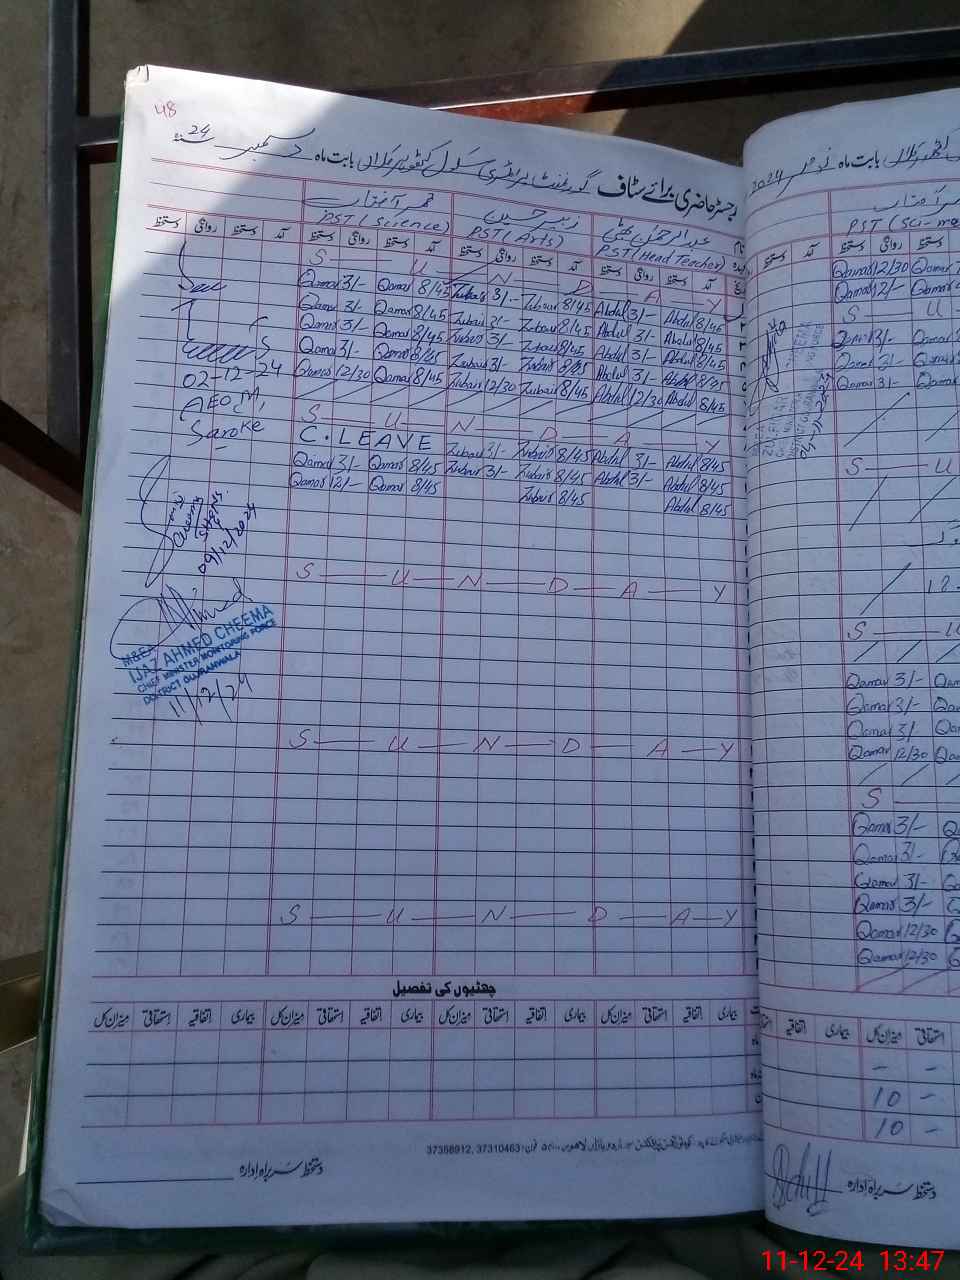 48
رجسٹر حاضری برائے سٹاف گورنمنٹ پرائمری سکول بابت ماہ دسمبر 24
قمر آفتاب زبیر حسین عبدالرحمٰن بھٹی
PST (Science) PST (Arts) PST (Head Teacher)
دستخط روانگی دستخط آمد دستخط روانگی دستخط آمد دستخط روانگی دستخط آمد دستخط روانگی دستخط آمد
S U N D A Y
Qamar 3/- Qamar 8/45 Zubair 3/- Zubair 8/45 Abdul 3/- Abdul 8/45
Qamar 3/- Qamar 8/45 Zubair 3/- Zubair 8/45 Abdul 3/- Abdul 8/45
Qamar 3/- Qamar 8/45 Zubair 3/- Zubair 8/45 Abdul 3/- Abdul 8/45
Qamar 3/- Qamar 8/45 Zubair 3/- Zubair 8/45 Abdul 3/- Abdul 8/45
Qamar 12/30 Qamar 8/45 Zubair 12/30 Zubair 8/45 Abdul 12/30 Abdul 8/45
S U N D A Y
C. LEAVE Zubair 3/- Zubair 8/45 Abdul 3/- Abdul 8/45
Qamar 3/- Qamar 8/45 Zubair 3/- Zubair 8/45 Abdul 3/- Abdul 8/45
Qamar 12/- Qamar 8/45 Zubair 8/45 Abdul 8/45
S U N D A Y
S U N D A Y
S U N D A Y
02-12-24
AEO M,
Saroke
09/12/2024
M&EA
IJAZ AHMED CHEEMA
CHIEF MINISTER MONITORING FORCE
DISTRICT GUJRANWALA
11/12/24
چھٹیوں کی تفصیل
میزان کل استحقاقی اتفاقیہ بیماری میزان کل استحقاقی اتفاقیہ بیماری میزان کل استحقاقی اتفاقیہ بیماری میزان کل استحقاقی اتفاقیہ بیماری
37358912, 37310463 :فون
دستخط سربراہ ادارہ
بابت ماہ نومبر 2024
PST (Sci-ma
دستخط آمد دستخط روانگی
Qamar 12/30
Qamar 12/-
S U
Qamar 3/-
Qamar 3/-
Qamar 3/-
S U
S U
Qamar 3/-
Qamar 3/-
Qamar 3/-
Qamar 12/30
S
Qamar 3/-
Qamar 3/-
Qamar 3/-
Qamar 3/-
Qamar 12/30
Qamar 12/30
اتفاقیہ بیماری میزان کل استحقاقی
- -
10 -
10 -
دستخط سربراہ ادارہ
11-12-24 13:47